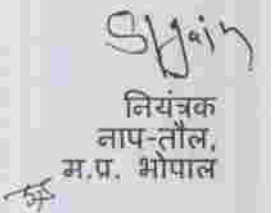 SJain
नियंत्रक
नाप-तौल,
म.प्र. भोपाल